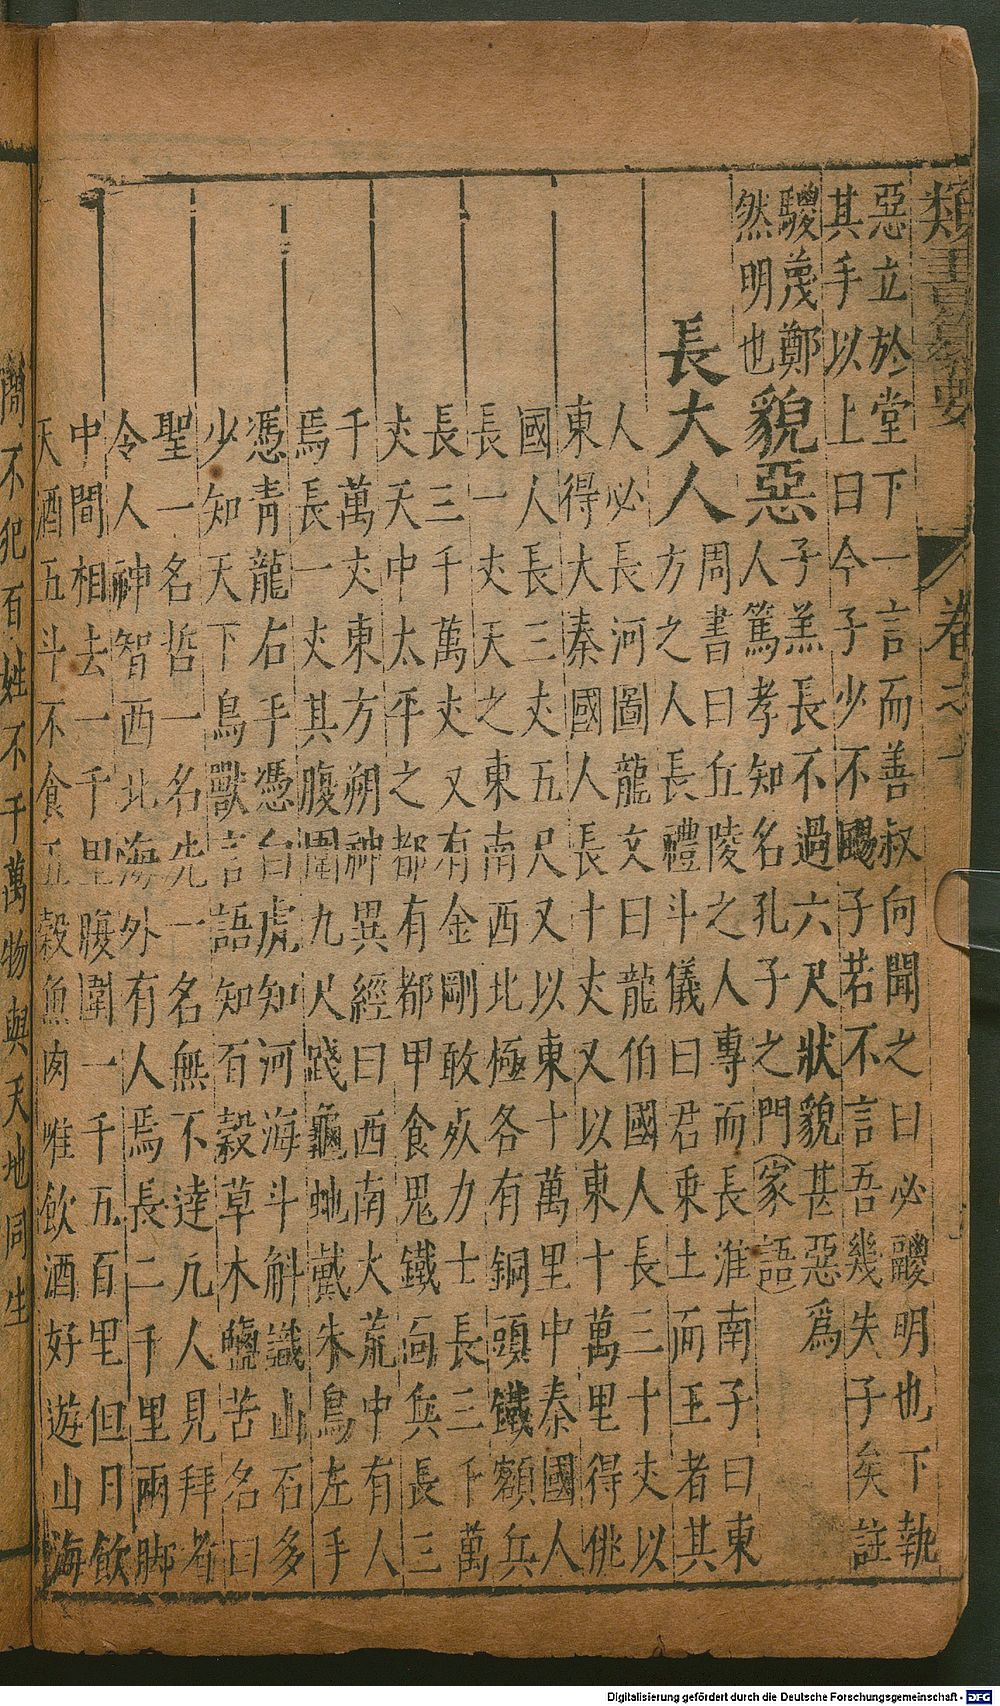 類書纂要 卷之
惡立於堂下一言而善叔向聞之曰必鬷明也下執
其手以上曰今子少不颺子若不言吾幾失子矣註
鬷蔑鄭
然明也
貌惡
子羔長不過六尺狀貌甚惡爲
人篤孝知名孔子之門(家語)
長大人
周書曰丘陵之人專而長淮南子曰東
方之人長禮斗儀曰君乘土而王者其
人必長河圖龍文曰龍伯國人長三十丈以
東得大秦國人長十丈又以東十萬里得佻
國人長三丈五尺又以東十萬里中秦國人
長一丈天之東南西北極各有銅頭鐵額兵
長三千萬丈又有金剛敢死力士長三千萬
丈天中太平之都有都甲食鬼鐵面兵長三
千萬丈東方朔神異經曰西南大荒中有人
焉長一丈其腹圍九尺踐龜虵戴朱鳥左手
憑青龍右手憑白虎知河海斗斛識山石多
少知天下鳥獸言語知有穀草木鹽苦名曰
聖一名哲一名先一名無不達凢人見拜者
令人神智西北海外有人焉長二千里兩脚
中間相去一千里腹圍一千五百里但日飲
天酒五斗不食五穀魚肉唯飲酒好遊山海
間不犯百姓不干萬物與天地同生
Digitalisierung gefördert durch die Deutsche Forschungsgemeinschaft - DFG